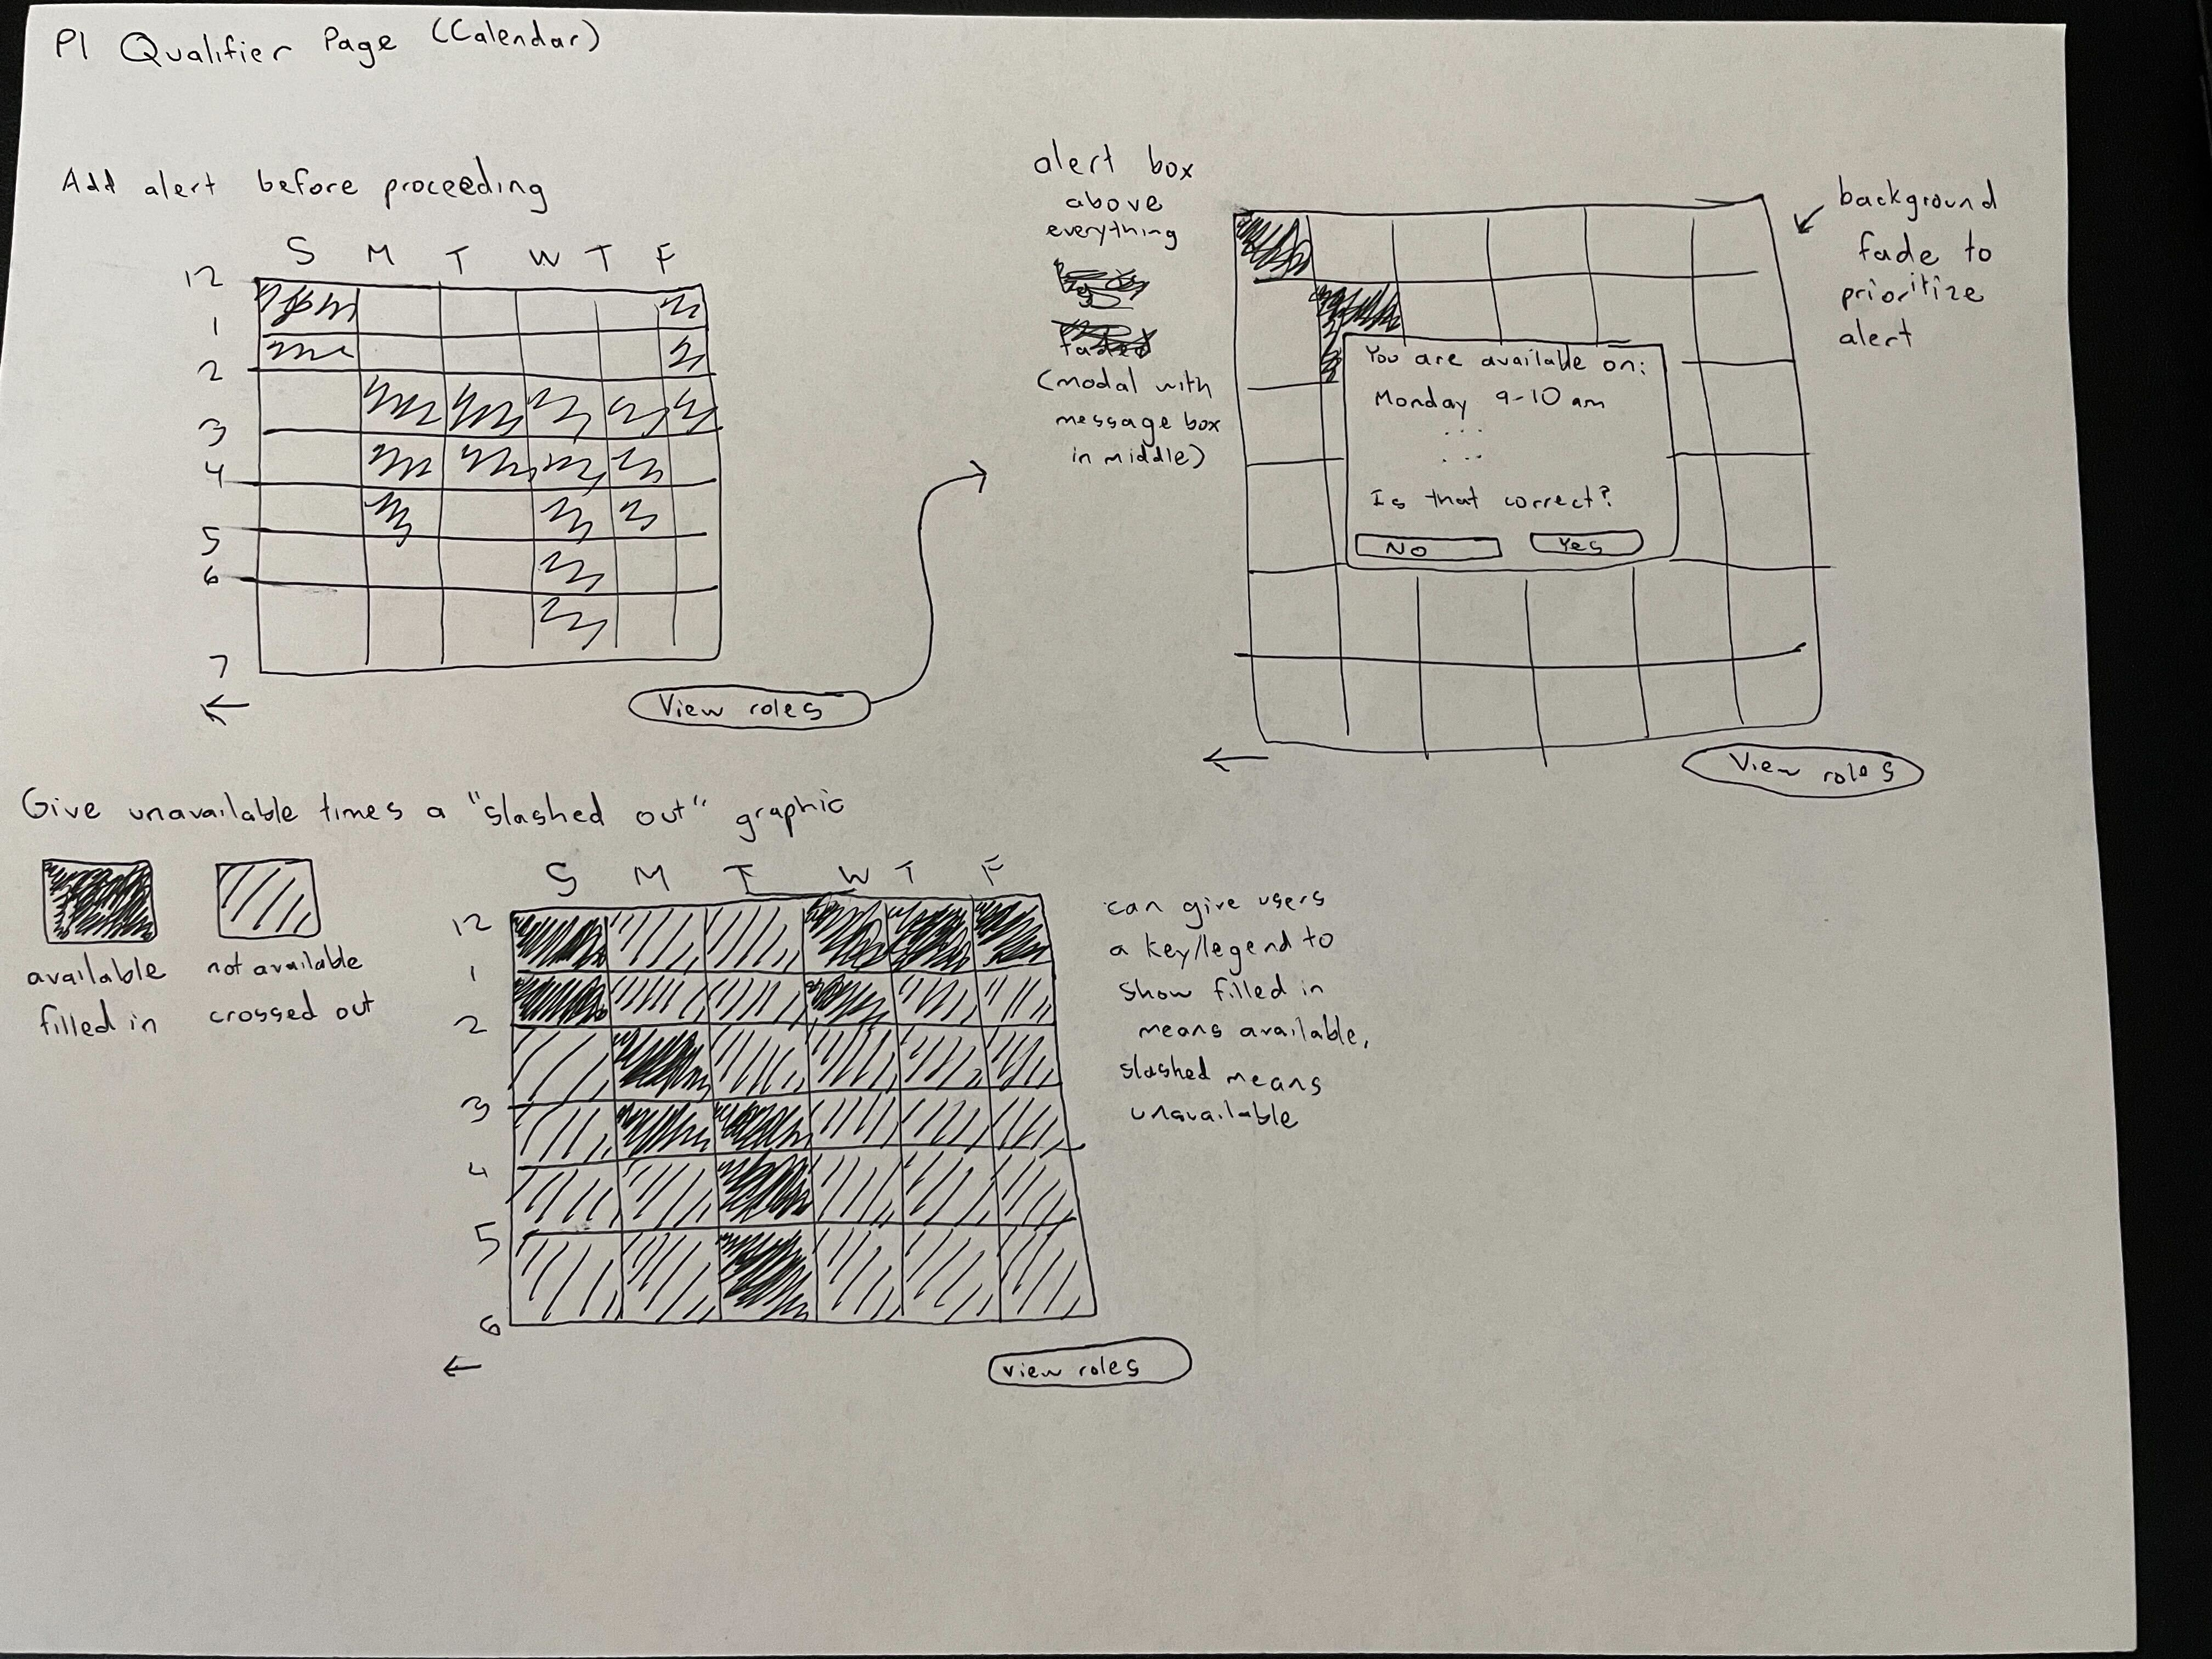 P1 Qualifier Page (Calendar)
Add alert before proceeding
S M T W T F
12
1
2
3
4
5
6
7
←
View roles
alert box
above
everything
(modal with
message box
in middle)
You are available on:
Monday 9-10 am
...
...
Is that correct?
No Yes
background
fade to
prioritize
alert
←
View roles
Give unavailable times a "slashed out" graphic
available
filled in
not available
crossed out
S M T W T F
12
1
2
3
4
5
6
←
view roles
can give users
a key/legend to
show filled in
means available,
slashed means
unavailable